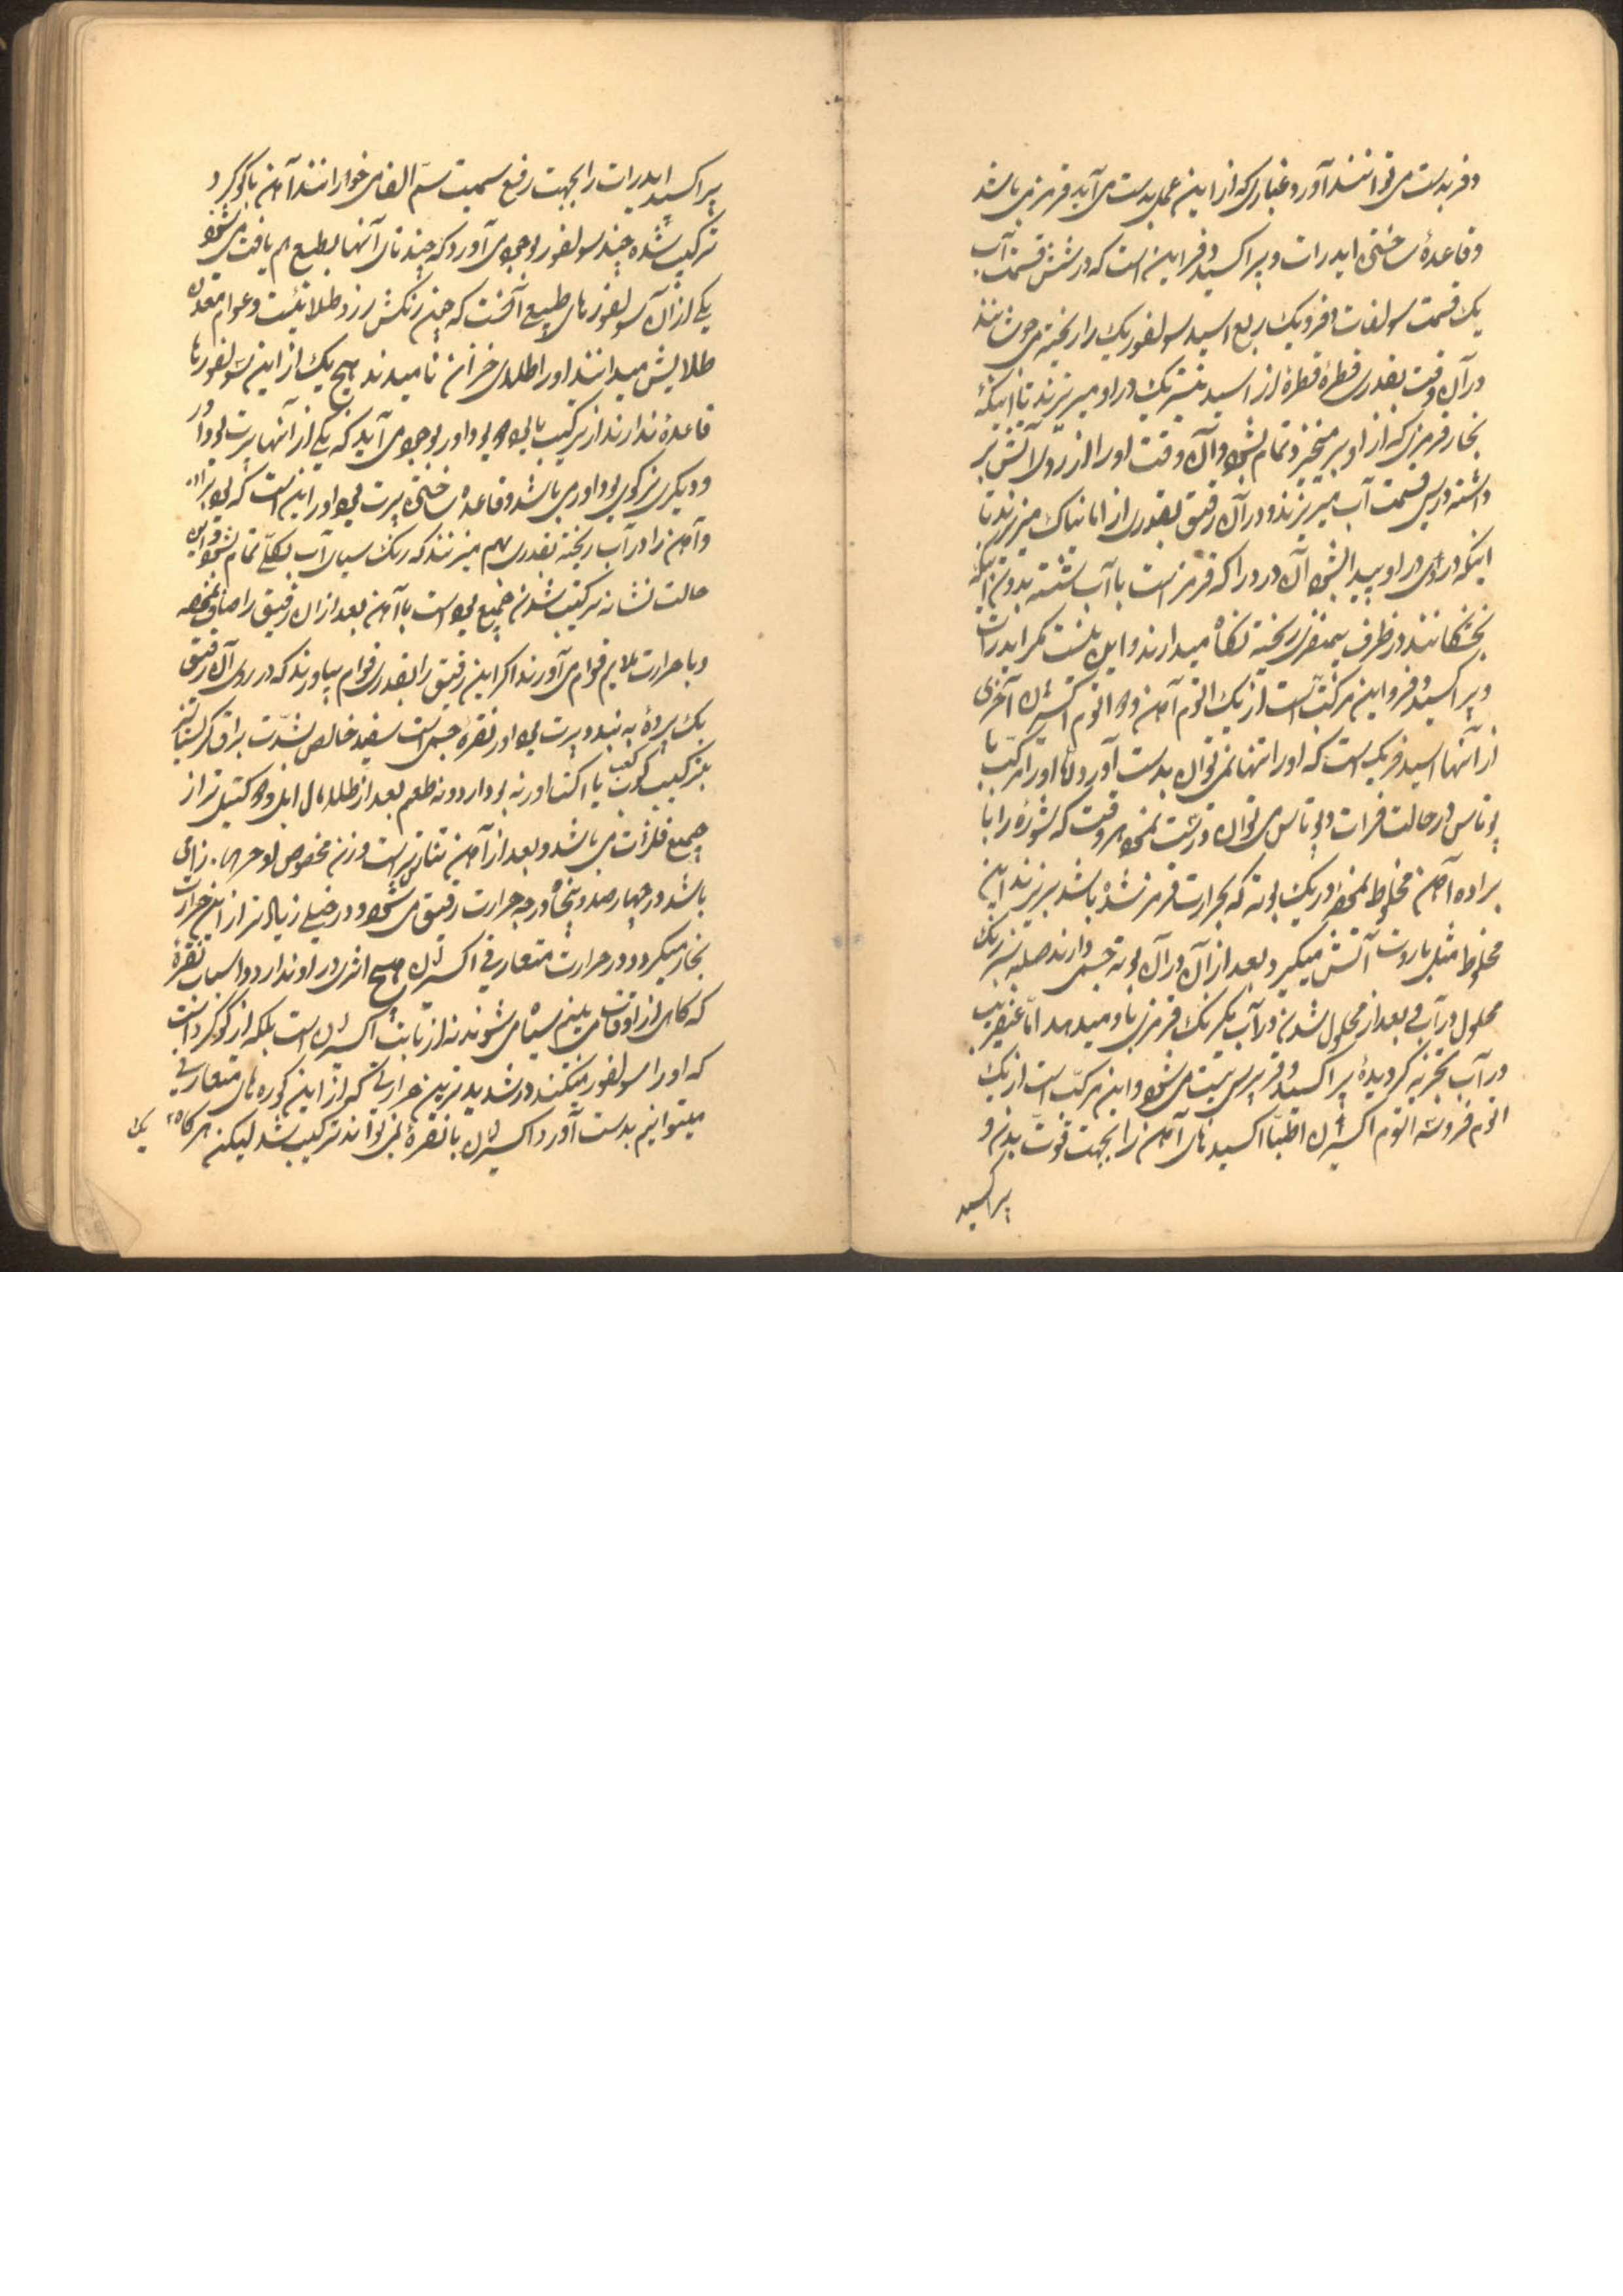 دفر بدست می توانند آورد و غباری که از این عمل بدست می آید قرمز می باشد
وقاعدهٔ ساختن ایدرات و پراکسید دفر این است که در شش قسمت آب
یک قسمت سولفات دفر و یک ربع اسید سولفوریک را ریخته می جوشانند
در آن وقت بقدری قطره قطره از اسید نیتریک در او میریزند تا اینکه
بخار قرمزی که از او بر میخیزد تمام بشود و آن وقت او را از روی آتش بر
داشته در سی قسمت آب میریزند و در آن رقیق بقدری از امانیاک میریزند تا
اینکه دردی در او پیدا بشود آن درد را که قرمز است با آب شسته بدون اینکه
بخشکانند در ظرف ریخته نگاه میدارند و این نیست مگر ایدرات
و پراکسید دفر و این مرکب است از یک اتوم آهن و اتوم اکسیژن آخری
از آنها اسید فریک است که او را تنها نمی توان بدست آورد اما او را مرکب با
پوتاس در حالت فرات دپوتاس می توان درست نمود هر وقت که شوره را با
براده آهن مخلوط نموده در یک بوته که بحرارت قرمز شده باشد بریزند این
مخلوط مثل باروت آتش میگیرد و بعد از آن در آن بوته جسمی دارند صلبه
محلول در آب و بعد از محلول شدن در آب یک رنگ قرمزی باو میدهد اما عنقریب
در آب تجزیه گردیده پراکسید دفر می شود و این مرکب است از یک
اتوم فر و سه اتوم اکسیژن اطبا اکسیدهای آهن را بجهت قوت بدن و
پراکسید
پراکسید ایدرات را بجهت رفع سمیت سم الفار می خورانند آهن با گوگرد
ترکیب شده چند سولفور بوجود می آورد که چند تای آنها بطبع هم یافت می شود
یکی از آن سولفورهای طبیعی آنست که چون رنگش زرد طلائیست و عوام معدن
طلایش میدانند او را طلای خزان نامیدند هیچ یک از این سولفورها
قاعده ندارند از ترکیب با او بوجود می آید که یکی از آنها
و دیگری می باشد و قاعدهٔ ساختن این است که
و آهن را در آب ریخته بقدری بهم میزنند که رنگ سیاه آب بکلی تمام بشود این
حالت نشانه ترکیب شدن جمیع است با آهن بعد از آن رقیق را صاف نموده
و با حرارت ملایم قوام می آورند اگر این رقیق را بقدری قوام بیاورند که در روی آن رقیق
یک پرده به بندد نقره جسمی است سفید خالص بشدت براق
بترکیب مکعب یا اکتااور نه بو دارد و نه طعم بعد از طلا تر از
جمیع فلزات می باشد و بعد از آهن است وزن مخصوص او زمانی
باشد در چهار صد و پنجاه درجه حرارت رقیق می شود و در خیلی زیاد تر از این حرارت
بخار میگردد و در حرارت متعارفی اکسیژن هیچ اثری در او ندارد و اسباب نقره
که گاهی از اوقات می بینیم سیاه می شوند نه از بابت اکسیژن است بلکه از گوگرد است
که او را سولفور میکنند در شدید ترین حرارتی که از این کوره های متعارفی
میتوانیم بدست آورد اکسیژن با نقره نمی تواند ترکیب شد لیکن هرگاه
یک